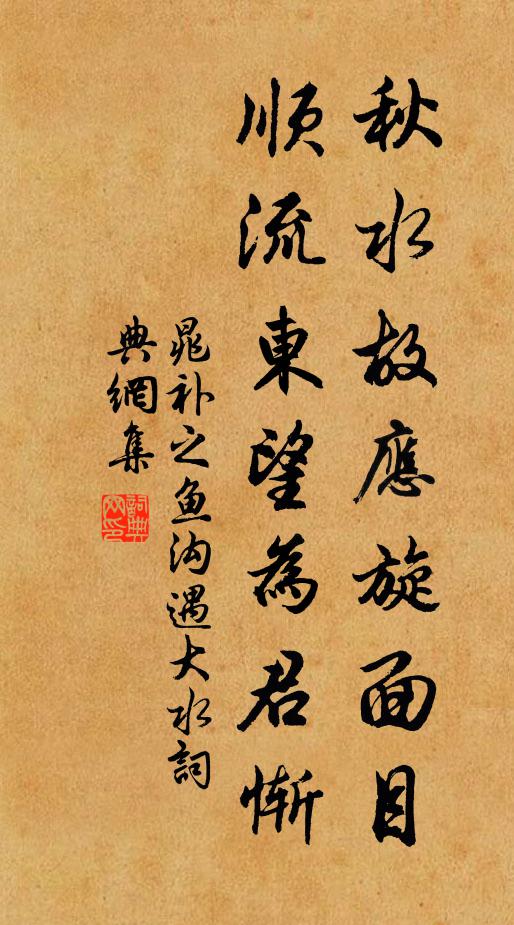 秋水故應旋面目
順流東望為君慚
晁补之鱼沟遇大水詞
典網集
詞典网印